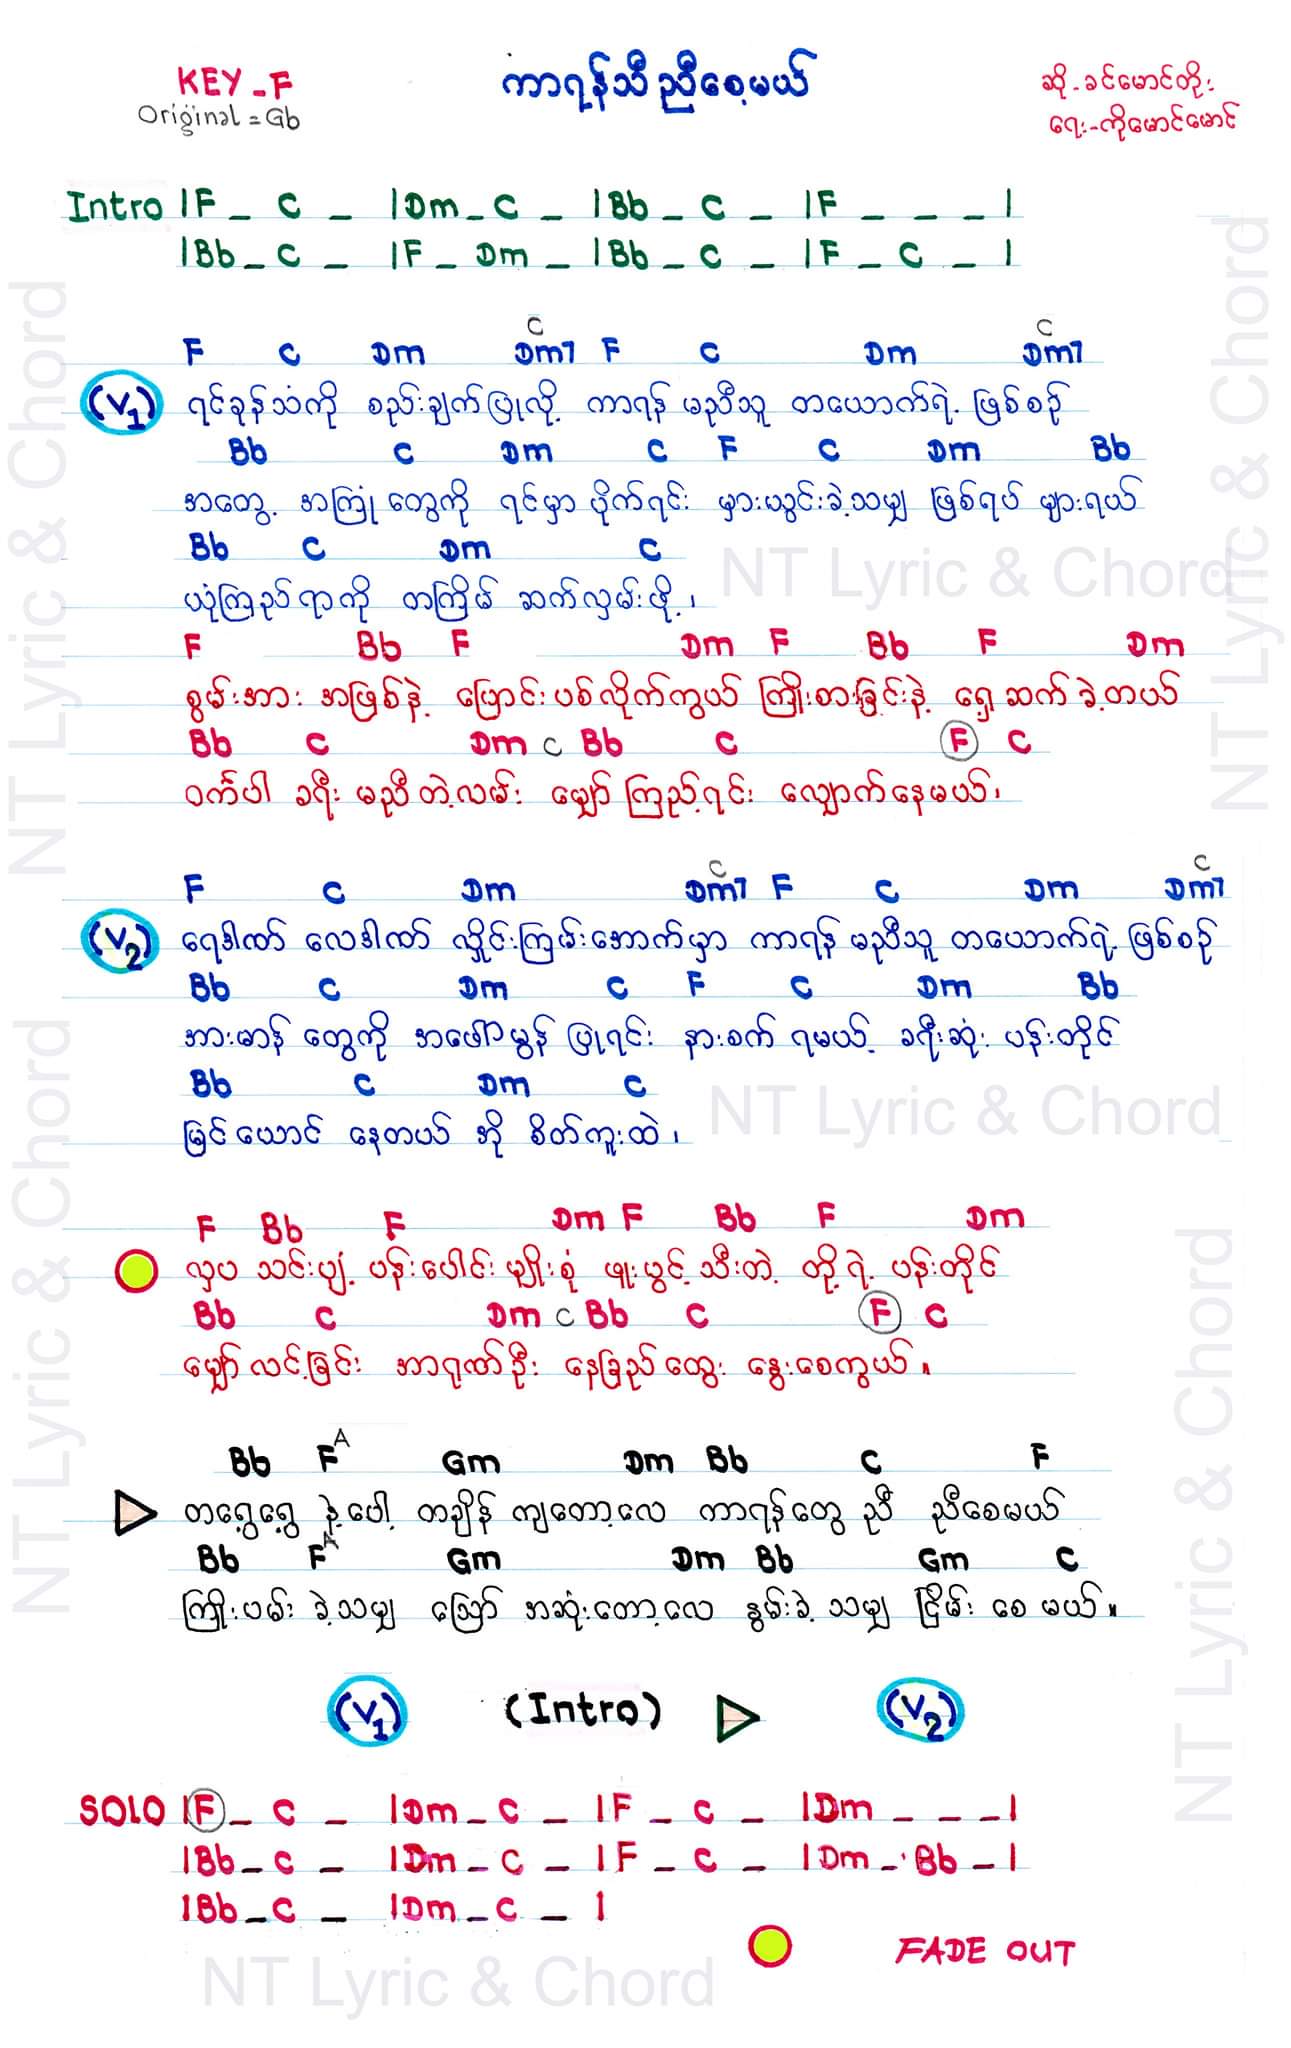 KEY - F
Original = Gb
ကာရန်သီညီစေ့မယ်
ဆို - ခင်မောင်တိုး
ရေး - ကိုမောင်မောင်
Intro |F _ C _ |Dm _ C _ |Bb _ C _ |F _ _ _ |
|Bb _ C _ |F _ Dm _ |Bb _ C _ |F _ C _ |
C C
F C Dm Dm7 F C Dm Dm7
(V1) ရင်ခုန်သံကို စည်းချက်ပြုလို့ ကာရန် မညီသူ တယောက်ရဲ့ ဖြစ်စဉ်
Bb C Dm C F C Dm Bb
အတွေ့ အကြုံ တွေကို ရင်မှာ ပိုက်ရင်း မှားယွင်းခဲ့သမျှ ဖြစ်ရပ် များရယ်
Bb C Dm C
ယုံကြည်ရာကို တကြိမ် ဆက်လှမ်းဖို့ ၊
F Bb F Dm F Bb F Dm
စွမ်းအား အဖြစ်နဲ့ ပြောင်းပစ်လိုက်ကွယ် ကြိုးစားခြင်းနဲ့ ရှေ့ဆက်ခဲ့တယ်
Bb C Dm C Bb C F C
ဝင်္ကပါ ခရီး မညီတဲ့လမ်း မျှော်ကြည့်ရင်း လျှောက်နေမယ်၊
C C
F C Dm Dm7 F C Dm Dm7
(V2) ရေဒဏ် လေဒဏ် လှိုင်းကြမ်းအောက်မှာ ကာရန် မညီသူ တယောက်ရဲ့ ဖြစ်စဉ်
Bb C Dm C F C Dm Bb
အားမာန် တွေကို အဖော်မွန် ပြုရင်း နားစက် ရမယ့် ခရီးဆုံး ပန်းတိုင်
Bb C Dm C
မြင်ယောင် နေတယ် အို စိတ်ကူးထဲ ၊
F Bb F Dm F Bb F Dm
လှပ သင်းပျံ့ ပန်းပေါင်းမျိုးစုံ ဖူးပွင့်သီးတဲ့ တို့ရဲ့ ပန်းတိုင်
Bb C Dm C Bb C F C
မျှော်လင့်ခြင်း အာရုဏ်ဦး နေခြည်ထွေး နွေးစေကွယ် ။
Bb F A Gm Dm Bb C F
တရွေ့ရွေ့ နဲ့ပေါ့ တချိန် ကျတော့လေ ကာရန်တွေ ညီ ညီစေမယ်
Bb F A Gm Dm Bb Gm C
ကြိုးပမ်း ခဲ့သမျှ သြော် အဆုံးတော့လေ နွမ်းခဲ့ သမျှ ငြိမ်း စေ မယ် ။
(V1) (Intro) (V2)
SOLO |F _ C _ |Dm _ C _ |F _ C _ |Dm _ _ _ |
|Bb _ C _ |Dm _ C _ |F _ C _ |Dm _ Bb _ |
|Bb _ C _ |Dm _ C _ |
FADE OUT
NT Lyric & Chord
NT Lyric & Chord
NT Lyric & Chord
NT Lyric & Chord
NT Lyric & Chord
NT Lyric & Chord
NT Lyric & Chord